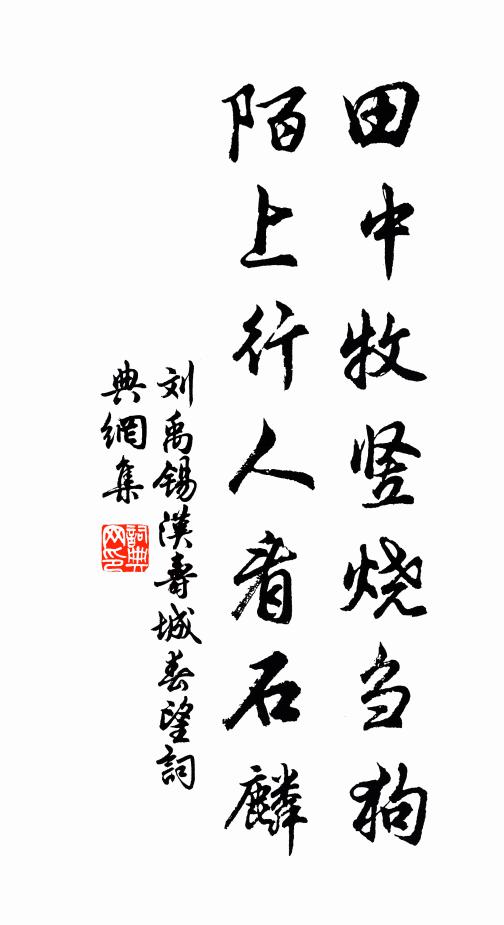 田中牧竖烧刍狗
陌上行人看石麟
刘禹锡汉寿城春望詞
典網集
詞典网印